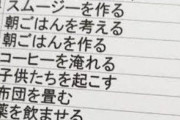 スムージーを作る
朝ごはんを考える
朝ごはんを作る
コーヒーを淹れる
子供たちを起こす
布団を畳む
薬を飲ませる